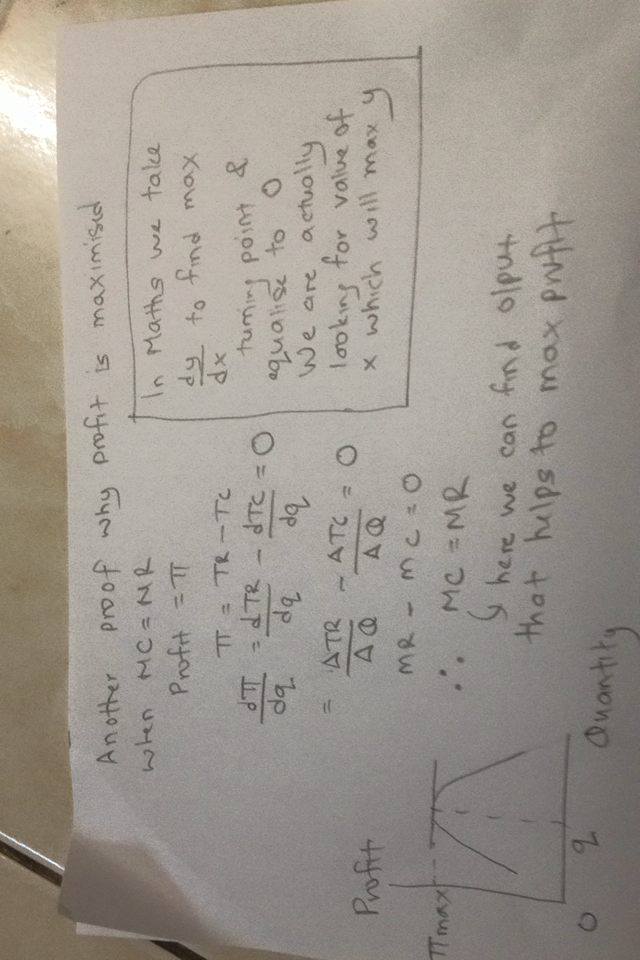 Another proof why profit is maximised
when MC = MR
Profit = π
π = TR - TC
dπ/dq = dTR/dq - dTC/dq = 0
= ΔTR/ΔQ - ΔTC/ΔQ = 0
MR - MC = 0
∴ MC = MR
↳ here we can find o/put
that helps to max profit
In Maths we take
dy/dx to find max
turning point &
equalise to 0
We are actually
looking for value of
x which will max y
Profit
πmax
0
q
Quantity